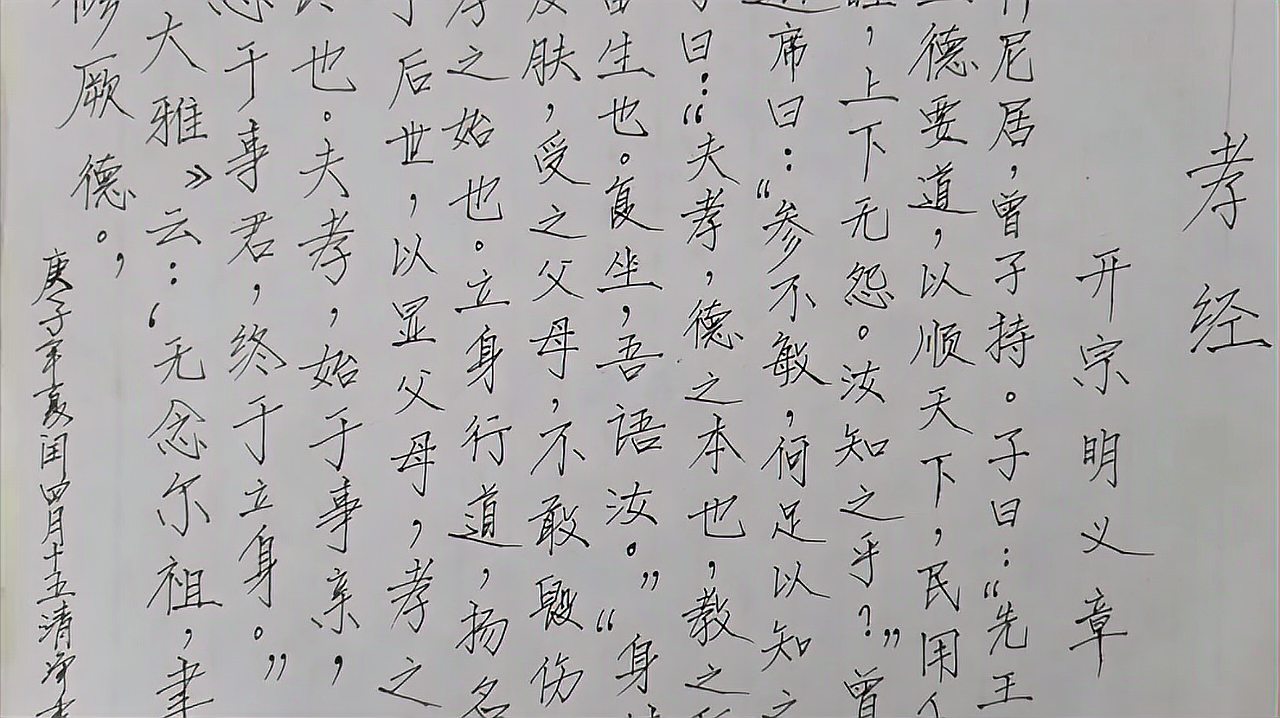 孝经
开宗明义章
尼居，曾子持。子曰：“先王
德要道，以顺天下，民用
，上下无怨。汝知之乎？”曾
席曰：“参不敏，何足以知之
曰：“夫孝，德之本也，教之
生也。复坐，吾语汝。”“身
肤，受之父母，不敢毁伤
之始也。立身行道，扬名
后世，以显父母，孝之
也。夫孝，始于事亲，
于事君，终于立身。”
大雅》云：‘无念尔祖，聿
修厥德。’
庚子年夏闰四月十五清净